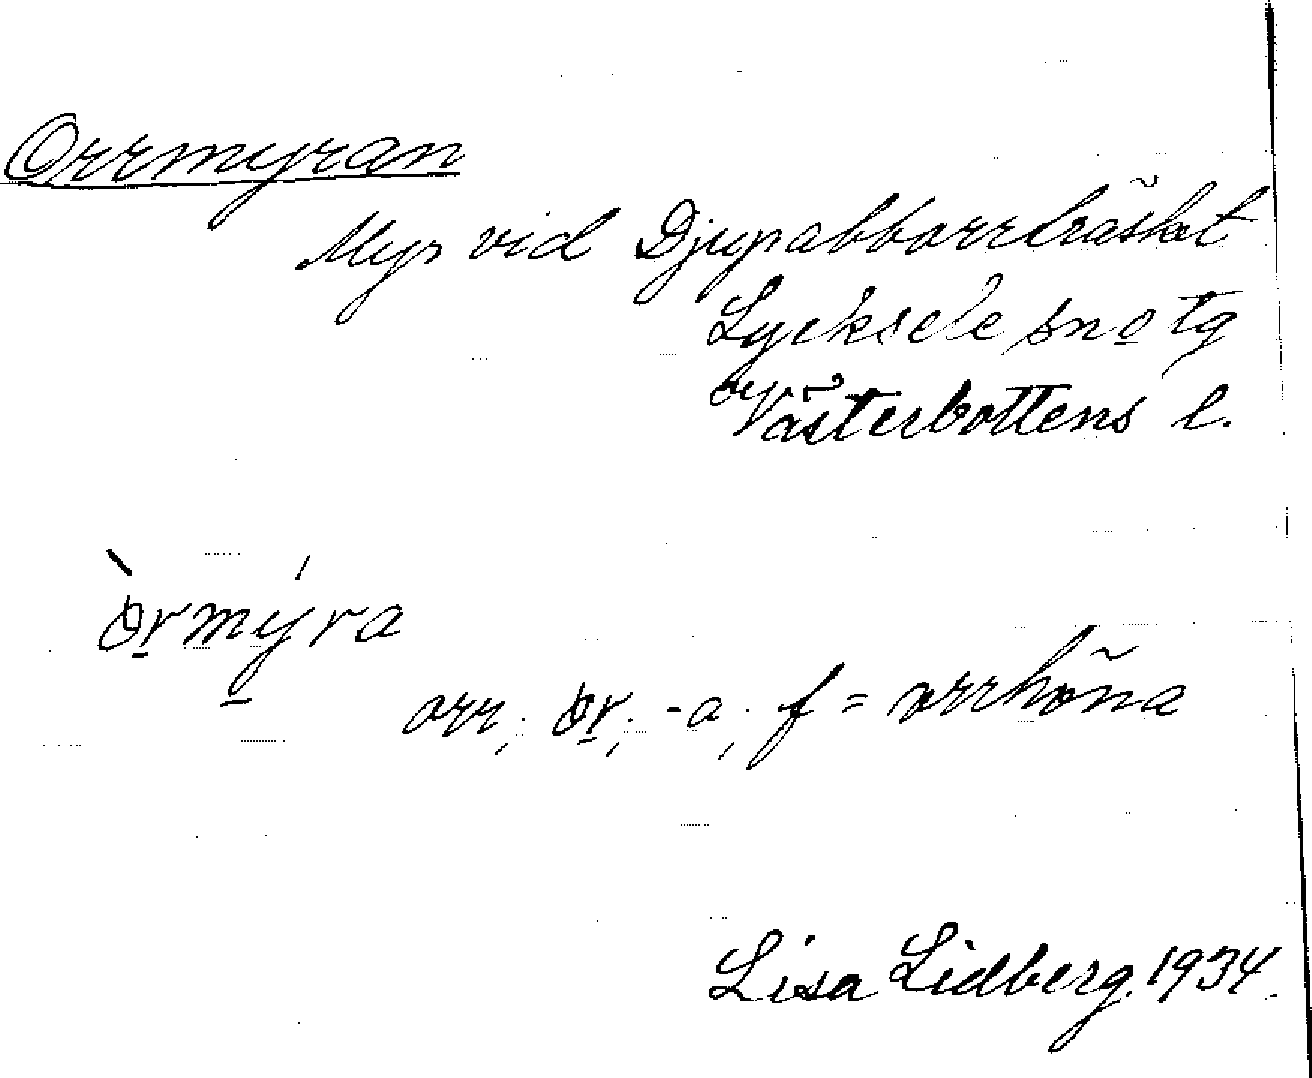 Orrmyran
Myr vid Djupabborrträsket
Lycksele sn o tg
Västerbottens l.
òrmýra
orr, òr, -a, f = orrhöna
Lisa Lidberg. 1934.